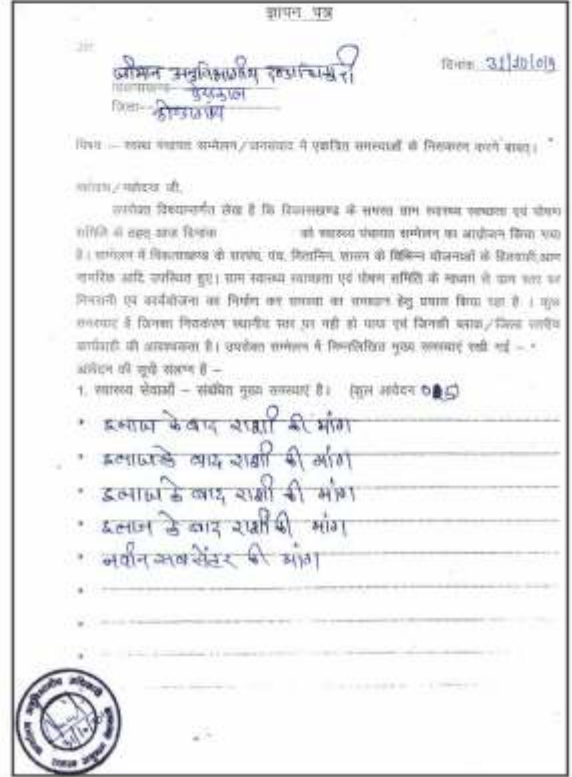 ज्ञापन पत्र
प्रति
श्रीमान अनुविभागीय दण्डाधिकारी
दिनांक 31/10/019
विकासखण्ड केशकाल
जिला कोण्डागांव
विषय :– स्वस्थ पंचायत सम्मेलन/जनसंवाद में एकत्रित समस्याओं के निराकरण करने बाबत्।
महोदय/महोदया जी,
उपरोक्त विषयान्तर्गत लेख है कि विकासखण्ड के समस्त ग्राम स्वास्थ्य स्वच्छता एवं पोषण
समिति के तहत् आज दिनांक को स्वास्थ्य पंचायत सम्मेलन का आयोजन किया गया
है। सम्मेलन में विकासखण्ड के सरपंच, पंच, मितानिन, शासन के विभिन्न योजनाओं के हितग्राही, आम
नागरिक आदि उपस्थित हुए। ग्राम स्वास्थ्य स्वच्छता एवं पोषण समिति के माध्यम से ग्राम स्तर पर
निगरानी एवं कार्ययोजना का निर्माण कर समस्या का समाधान हेतु प्रयास किया रहा है । कुछ
समस्याएं है जिनका निराकरण स्थानीय स्तर पर नही हो पाया एवं जिनकी ब्लाक/जिला स्तरीय
कार्यवाही की आवश्यकता है। उपरोक्त सम्मेलन में निम्नलिखित मुख्य समस्याएं रखी गई –
आवेदन की सूची संलग्न है –
1. स्वास्थ्य सेवाओं – संबंधित मुख्य समस्याएं है। (कुल आवेदन 05)
• इलाज के बाद राशी की मांग
• इलाज के बाद राशी की मांग
• इलाज के बाद राशी की मांग
• इलाज के बाद राशी की मांग
• नवीन सब सेंटर की मांग